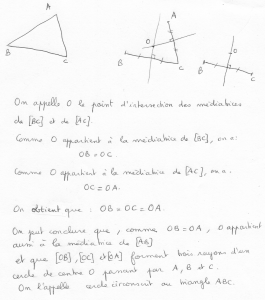 A
B
C
A
O
B
C
O
B
C
On appelle O le point d'intersection des médiatrices
de [BC] et de [AC].
Comme O appartient à la médiatrice de [BC], on a:
OB = OC.
Comme O appartient à la médiatrice de [AC], on a:
OC = OA.
On obtient que : OB = OC = OA.
On peut conclure que, comme OB = OA, O appartient
aussi à la médiatrice de [AB]
et que [OB], [OC] et [OA] forment trois rayons d'un
cercle de centre O passant par A, B et C.
On l'appelle cercle circonscrit au triangle ABC.